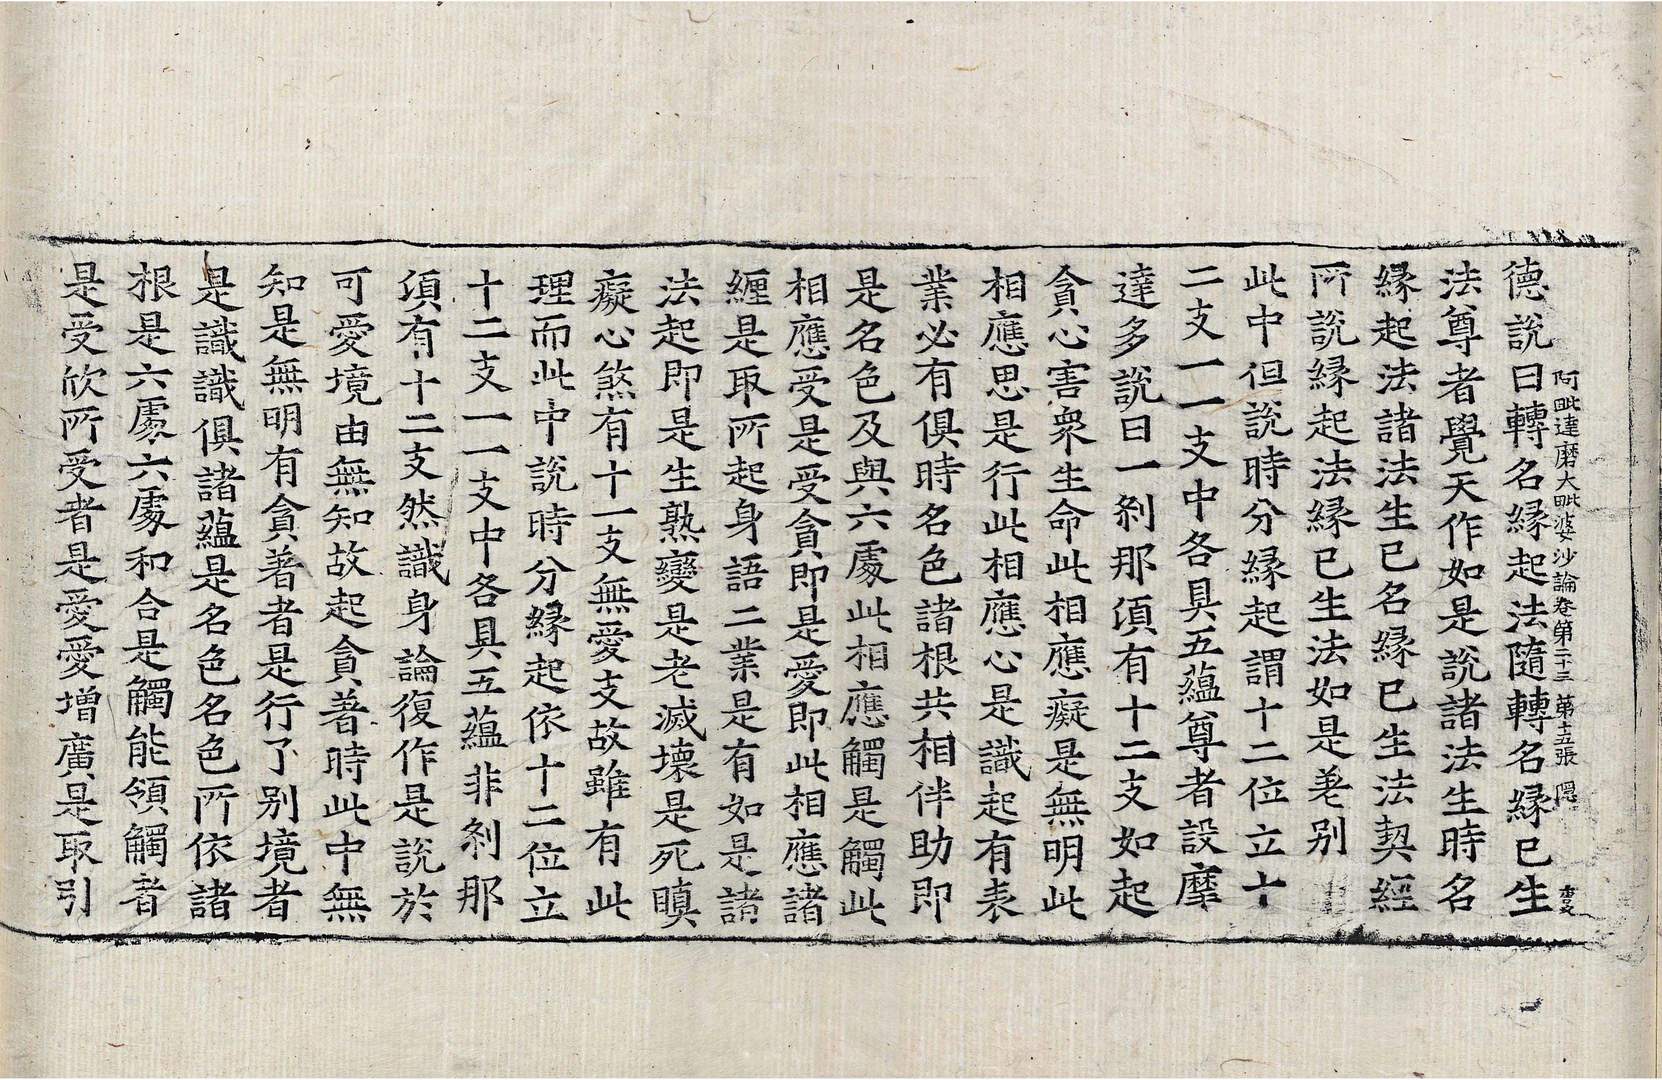 阿毗達磨大毗婆沙論卷第二十三 第十五張 隠
德說曰轉名緣起法隨轉名緣已生
法尊者覺天作如是說諸法生時名
緣起法諸法生已名緣已生法契經
所說緣起法緣已生法如是差别
此中但說時分緣起謂十二位立十
二支一一支中各具五蘊尊者設摩
達多說曰一剎那頃有十二支如起
貪心害衆生命此相應癡是無明此
相應思是行此相應心是識起有表
業必有俱時名色諸根共相伴助即
是名色及與六處此相應觸是觸此
相應受是受貪即是愛即此相應諸
纏是取所起身語二業是有如是諸
法起即是生熟變是老滅壞是死瞋
癡心煞有十一支無愛支故雖有此
理而此中說時分緣起依十二位立
十二支一一支中各具五蘊非剎那
頃有十二支然識身論復作是說於
可愛境由無知故起貪著時此中無
知是無明有貪著者是行了別境者
是識識俱諸蘊是名色名色所依諸
根是六處六處和合是觸能領觸者
是受欣所受者是愛愛增廣是取引